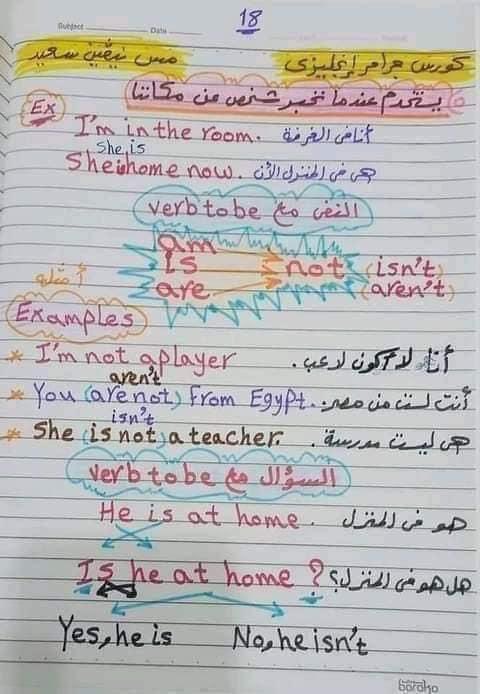 18
Subject
Date
كورس جرامر إنجليزى مس نيڤين سعيد
يستخدم عندما نخبر شخص عن مكاننا
Ex
I'm in the room. أنا فى الغرفة
She is
She is home now. هى فى المنزل الأن
النفى مع verb to be
am
is not (isn't)
are (aren't)
أمثله
Examples
* I'm not a player أنا لا أكون لاعب.
aren't
* You (are not) from Egypt. أنت لست من مصر.
isn't
* She (is not) a teacher. هى ليست مدرسة.
السؤال مع verb to be
He is at home. هو فى المنزل
Is he at home ? هل هو فى المنزل؟
Yes, he is No, he isn't
baraka